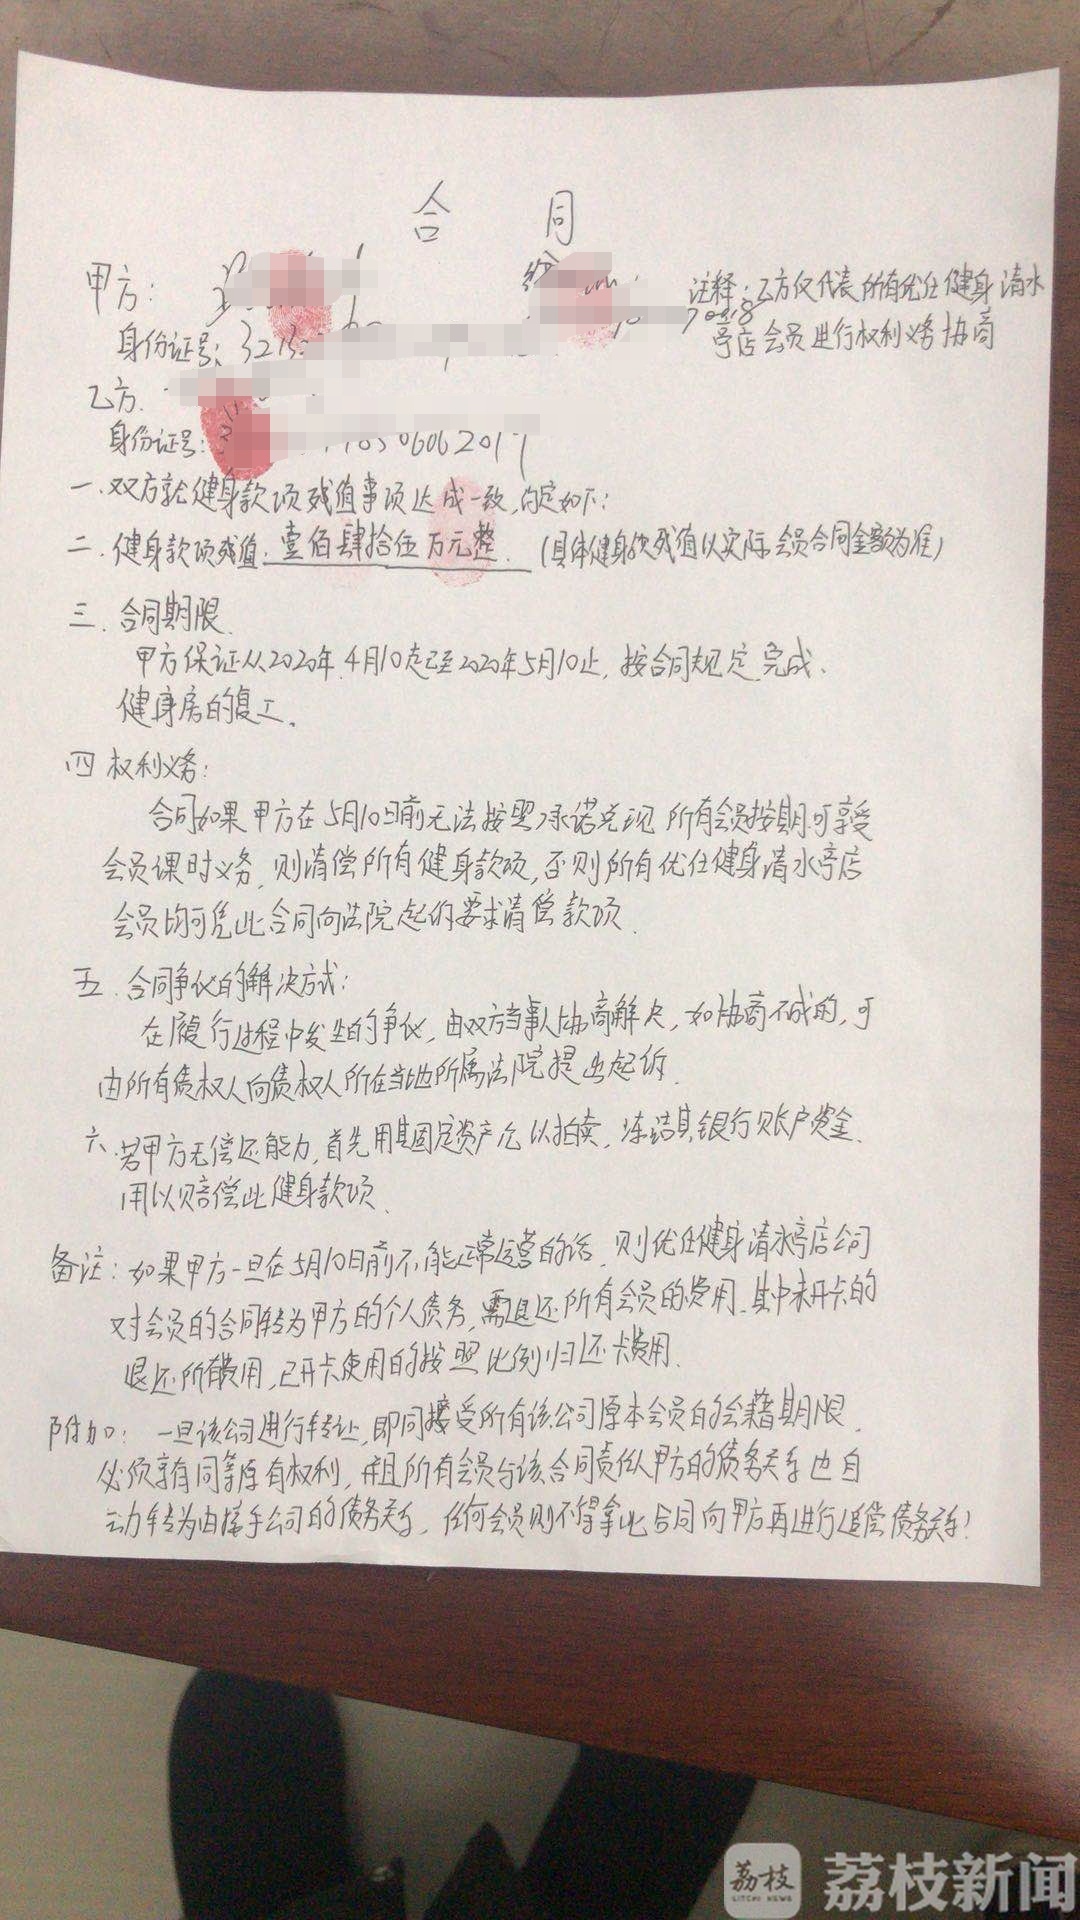 合 同
甲方：
注释：乙方仅代表所有优仕健身清水
身份证号：
亭店会员进行权利义务协商
乙方.
身份证号：
一.双方就健身款项残值事项达成一致，约定如下：
二.健身款项残值：壹佰肆拾伍万元整.（具体健身款残值以实际会员合同金额为准）
三.合同期限.
甲方保证从2020年4月10起至2020年5月10止，按合同规定完成.
健身房的复工.
四 权利义务：
合同如果甲方在5月10日前无法按照承诺兑现所有会员按期可享受
会员课时义务，则清偿所有健身款项，否则所有优仕健身清水亭店
会员均可凭此合同向法院起诉要求清偿款项.
五.合同争议的解决方式：
在履行过程中发生的争议，由双方当事人协商解决，如协商不成的，可
由所有债权人向债权人所在当地所属法院提出起诉.
六.若甲方无偿还能力，首先用其固定资产予以拍卖，冻结其银行账户资金.
用以赔偿此健身款项.
备注：如果甲方一旦在5月10日前不能正常运营的话，则优仕健身清水亭店公司
对会员的合同转为甲方的个人债务，需退还所有会员的费用.其中未开卡的
退还所有费用，已开卡使用的按照比例归还卡费用.
附加：一旦该公司进行转让，即同接受所有该公司原本会员的会籍期限，
必须享有同等原有权利，并且所有会员与该合同责任人甲方的债务关系也自
动转为由接手公司的债务关系，任何会员则不得拿此合同向甲方再进行追偿债务关系！
荔枝
LITCHI NEWS
荔枝新闻